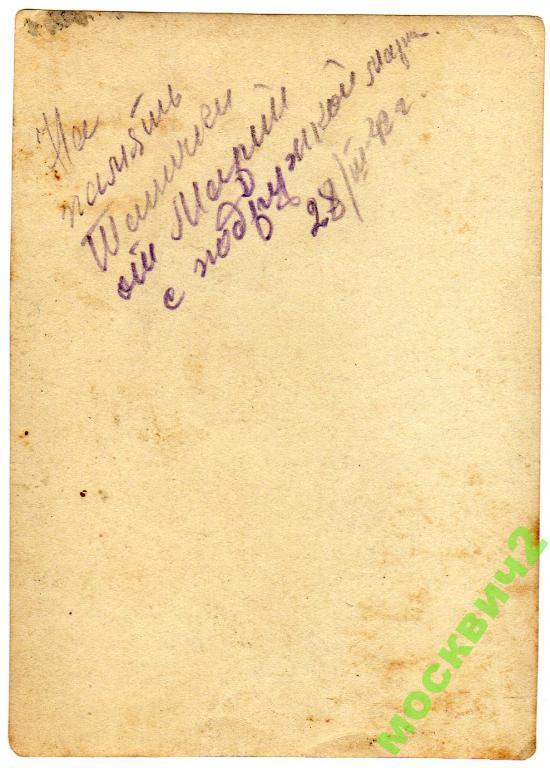 На
память
Танички
от Марии
с подружкой Мари.
28/III 42 г.
москвич2